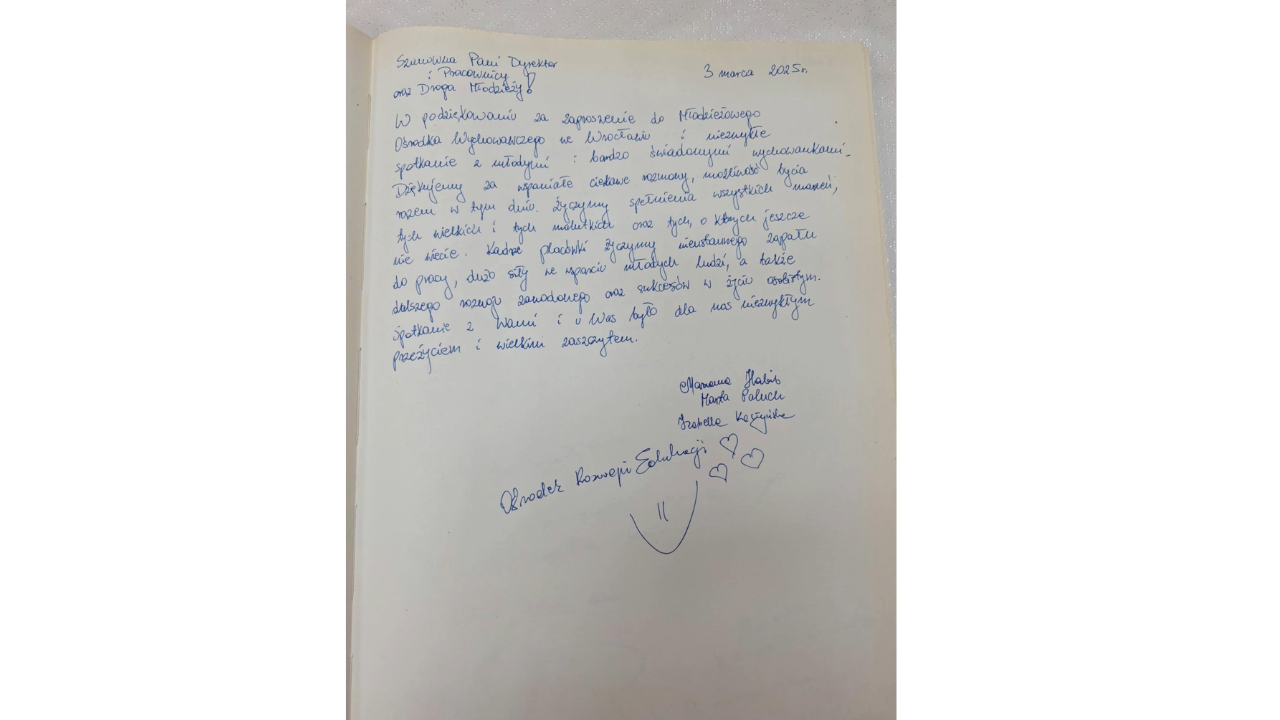 Szanowna Pani Dyrektor
i Pracownicy
oraz Droga Młodzieży!
3 marca 2025r.
W podziękowaniu za zaproszenie do Młodzieżowego
Ośrodka Wychowawczego we Wrocławiu i niezwykłe
spotkanie z młodymi i bardzo świadomymi wychowankami.
Dziękujemy za wspaniałe ciekawe rozmowy, możliwość bycia
razem w tym dniu. Życzymy spełnienia wszystkich marzeń,
tych wielkich i tych malutkich oraz tych, o których jeszcze
nie wiecie. Kadrze placówki życzymy nieustannego zapału
do pracy, dużo siły we wsparciu młodych ludzi, a także
dalszego rozwoju zawodowego oraz sukcesów w życiu osobistym.
Spotkanie z Wami i u Was było dla nas niezwykłym
przeżyciem i wielkim zaszczytem.
Marzena
Marta Paluch
Izabella
Ośrodek Rozwoju Edukacji